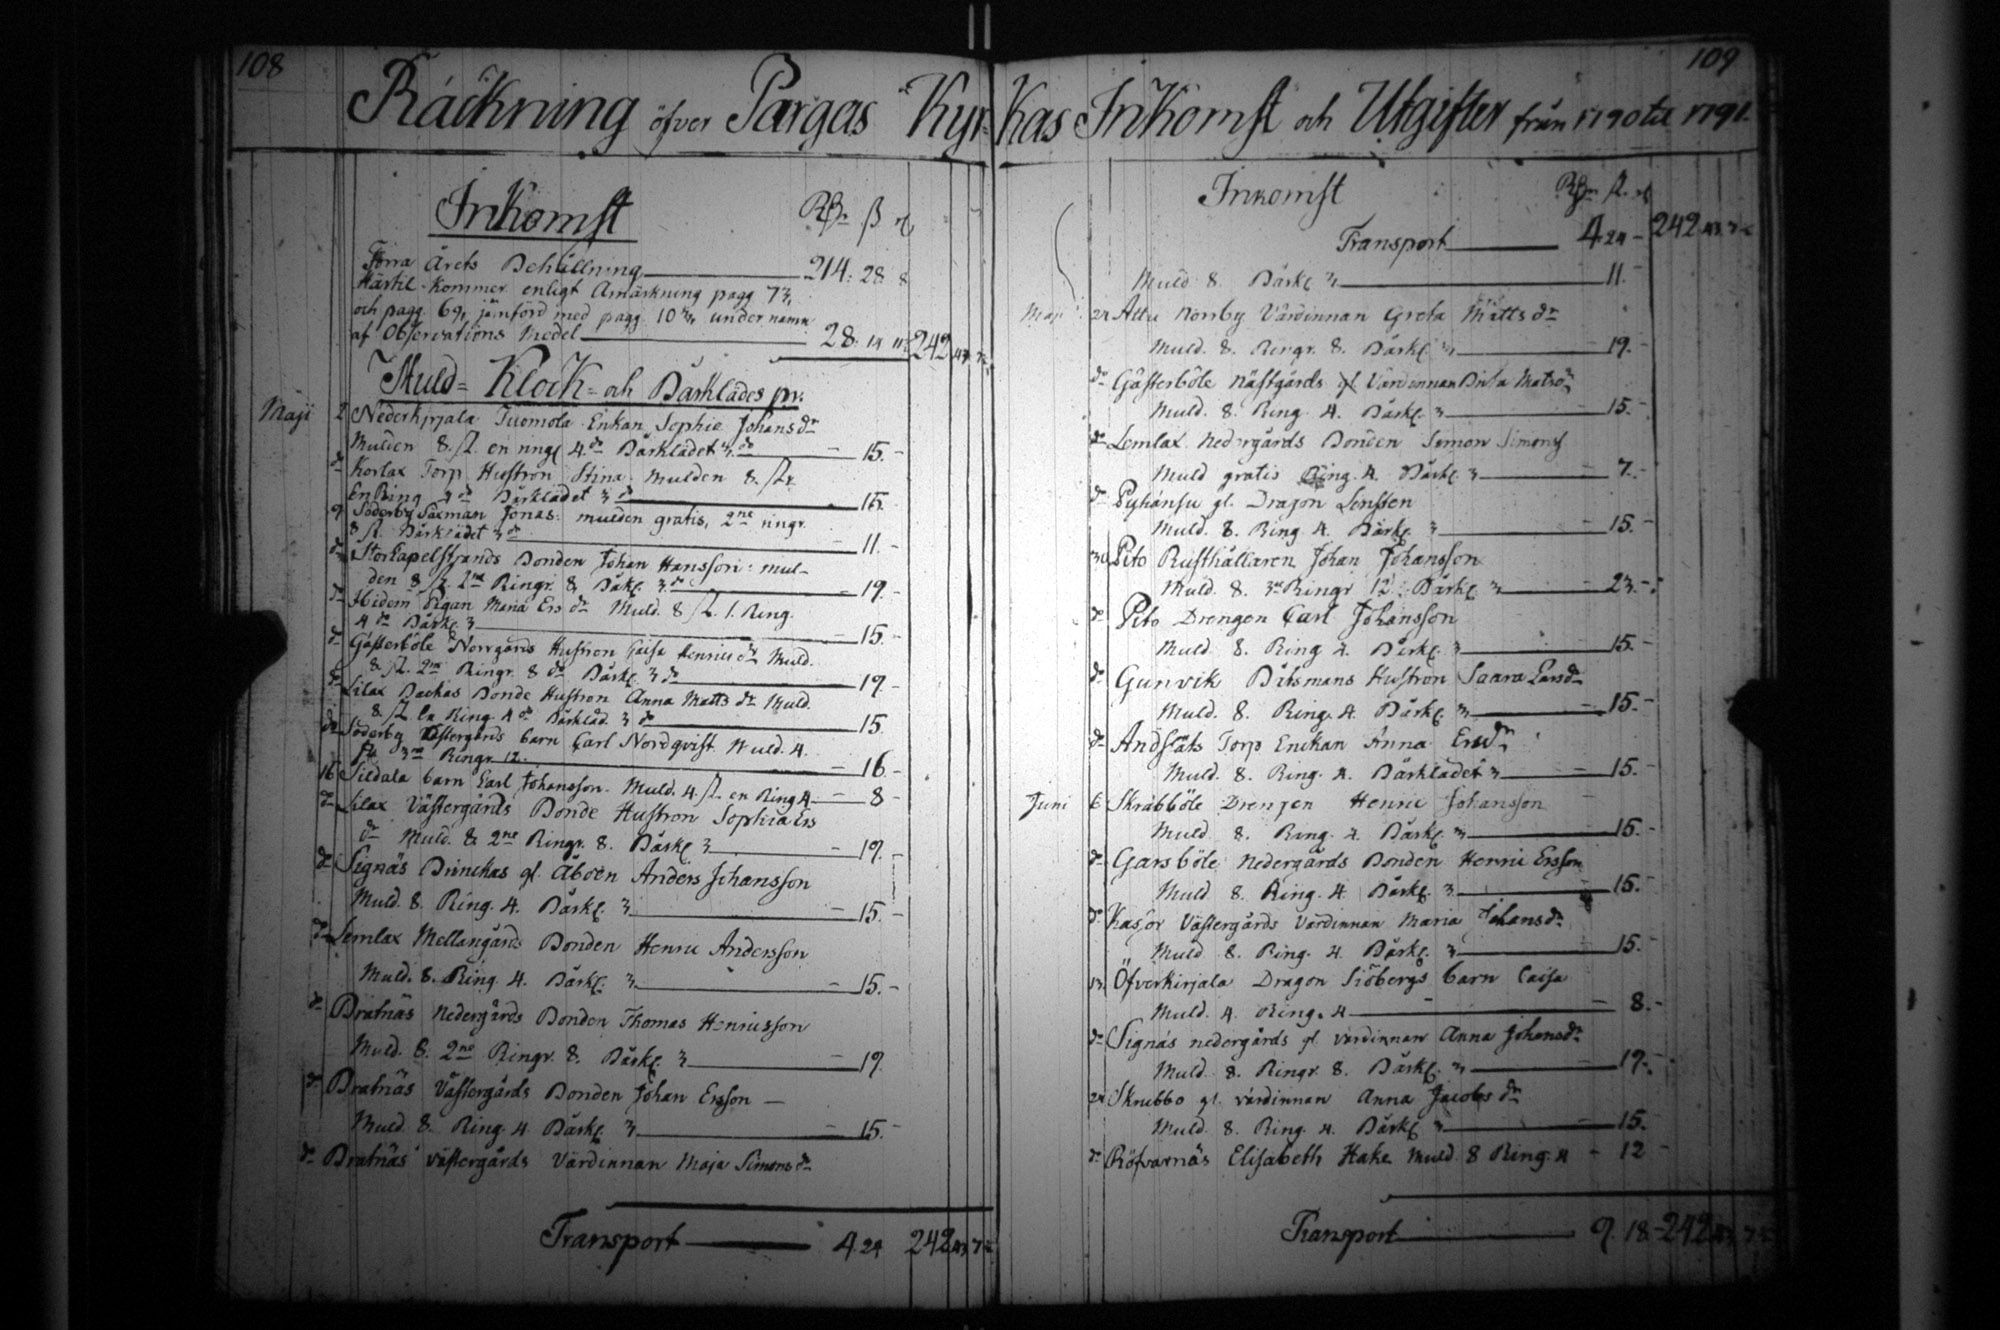 108
109
Räckning öfver Pargas Kyr-Kas InKomst och Utgifter från 1790 til 1791.
InKomst
Förra Årets Behållning 214: 28. 8
Härtil kommer enligt Anmärkning pagg 73,
och pagg 69, jämförd med pagg 10 under namn
af Observations Medel 28. 14 11 242 43 7
Muld= Klock= och Bårklädes pr.
Maji 2 Nederkirjala Tuomola Enkan Sophia Johans dr
Mulden 8. sk. en ring 4. do Bårklädet 3. do 15.
do Korlax Torp Hustron Stina mulden 8. sk.
En Ring 4 do Bårklädet 3 do 15.
9 Söderby Saxman Jonas: mulden gratis, 2ne ringr.
8 sk. Bårklädet 3 do 11.
do Storkapelstrands Bonden Johan Hansson: mul-
den 8 sk. 2ne Ringr. 8 Båkl. 3 do 19.
do Ibidem Pigan Maria Ers dr Muld. 8 sk. 1. Ring.
4 do Bårkl. 3 15.
do Gästerböle Norrgårds Hustron Caisa Henrics dr Muld.
8. sk. 2ne Ringr. 8 do Bårkl. 3 do 19.
do Lilax Backas Bonde Hustron Anna Matts dr Muld.
8. sk. en Ring. 4 do Bårkläd. 3 do 15.
do Söderby Västergårds barn Carl Nordqvist Muld. 4.
sk. 3ne Ringr. 12. 16.
16 Sildala barn Carl Johansson. Muld. 4. sk. en Ring 4 8
do Lilax Västergårds Bonde Hustron Sophia Ers
dr Muld. 8. 2ne Ringr. 8. Bårkl. 3 19.
do Signäs Brinckas gl. Åboen Anders Johansson
Muld. 8. Ring. 4. Bårkl. 3 15.
do Lemlax Mellangårds Bonden Henric Andersson
Muld. 8. Ring. 4. Bårkl. 3 15.
do Bratnäs Nedergårds Bonden Thomas Henricsson
Muld. 8. 2ne Ringr. 8. Bårkl. 3 19
do Bratnäs Västergårds Bonden Johan Ersson
Muld. 8. Ring. 4. Bårkl. 3 15.
do Bratnäs västergårds Värdinnan Maja Simons dr
Transport 4 24 242 43 7
Inkomst
Transport 4 24 242 43 7
Muld. 8. Bårkl. 3 11.
Maji 24 Attu Norrby Värdinnan Greta Matts dr
Muld. 8. Ringr. 8. Bårkl. 3 19.
do Gästerböle Nästgårds gl. Värdinnan Brita Mats dr
Muld. 8. Ring. 4. Bårkl. 3 15.
do Lemlax Nedergårds Bonden Simon Simons
Muld gratis Ring. 4. Bårkl. 3 7.
do Pyhänsu gl. Dragon Lenssen
Muld. 8. Ring. 4. Bårkl. 3 15.
30 Pito Rusthållaren Johan Johansson
Muld. 8. 3ne Ringr 12. Bårkl. 3 23.
do Pito Drengen Carl Johansson
Muld. 8. Ring. 4. Bårkl. 3 15.
do Gunvik Båtsmans Hustron Saara Larsdr
Muld. 8. Ring. 4. Bårkl. 3 15.
do Andsäts Torp Enckan Anna Ersdr
Muld. 8. Ring. 4. Bårklädet 3 15.
Juni 6 Skräbböle Drengen Henric Johansson
Muld. 8. Ring. 4. Bårkl. 3 15.
do Garsböle Nedergårds Bonden Henric Ersson
Muld. 8. Ring. 4. Bårkl. 3 15.
do Kasjor Västergårds Värdinnan Maria Johans dr
Muld. 8. Ring. 4. Bårkl. 3 15.
13 Öfverkirjala Dragon Siöbergs barn Caisa
Muld. 4. Ring. 4 8.
do Signäs nedergårds gl. värdinnan Anna Johans dr
Muld. 8. Ringr. 8. Bårkl. 3 19.
24 Skrubbo gl. värdinnan Anna Jacobs dr
Muld. 8. Ring. 4. Bårkl. 3 15.
do Röfvarnäs Elisabeth Hake Muld. 8 Ring. 4 12
Transport 9. 18 242 43 7